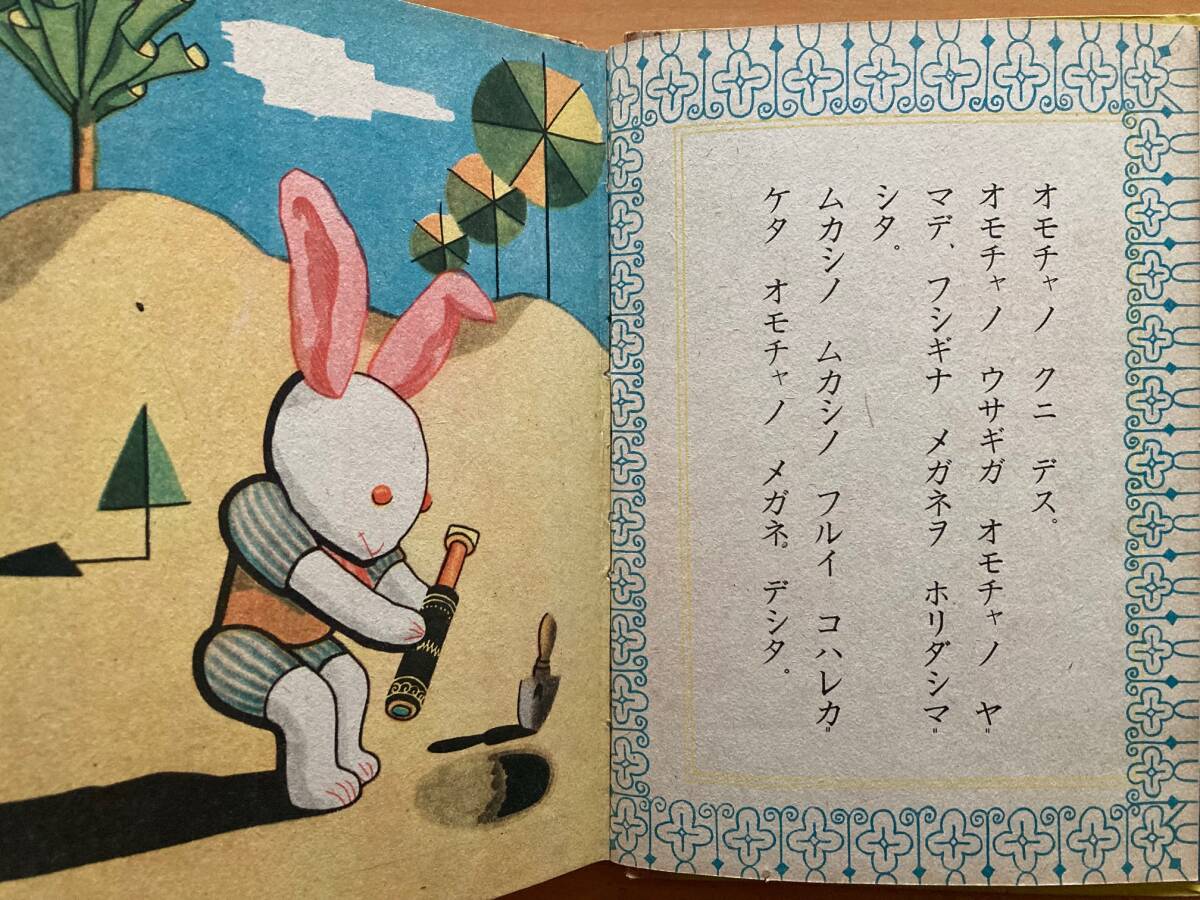 オモチャノ クニ デス。
オモチャノ ウサギガ オモチャノ ヤ゠
マデ、フシギナ メガネヲ ホリダシマ゠
シタ。
ムカシノ ムカシノ フルイ コハレカ゠
ケタ オモチャノ メガネ。デシタ。